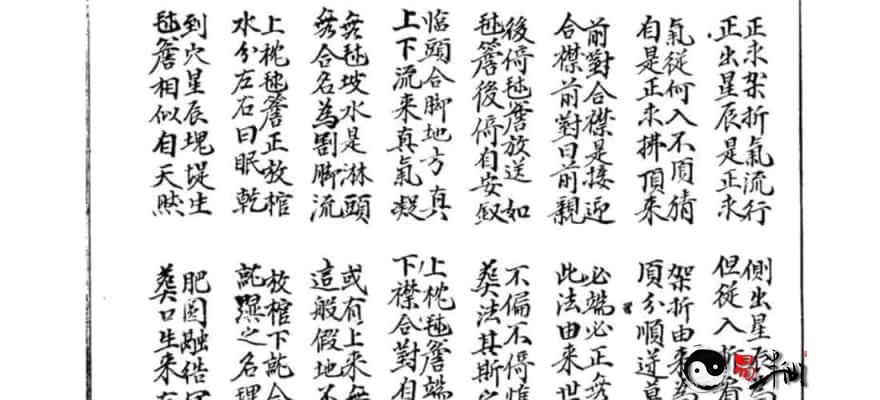 正求架折氣流行 側出星辰
正出星辰是正求 但從入折
氣從何入不須猜 架折由来為
自是正求拂頂来 項分順逆
前對合襟是接迎 必端必正無
合襟前對曰前親 此法由来世
後倚毬簷放送如 不偏不倚惟
毬簷後倚自安 葬法其斯
臨頭合脚地方真 上枕毬簷端
上下流来真氣凝 下襟合對自
無毬坡水是淋頭 或有上来無
無合名為割脚流 這般假地不
上枕毬簷正放棺 放棺下就合
水分左右曰眠乾 就濕之名理
到穴星辰塊堤生 肥圓融結
毬簷相似自天然 葬口生来
易